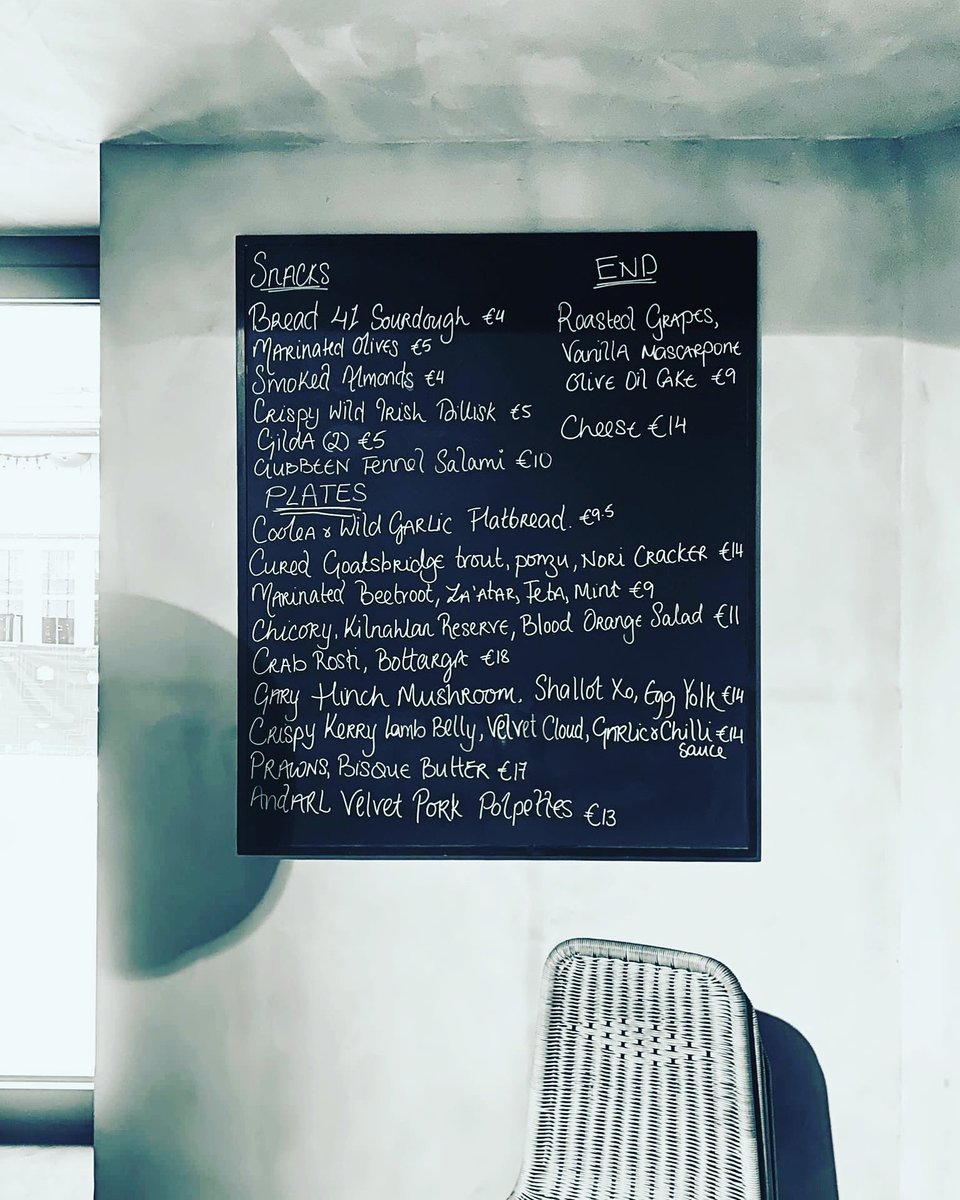 SNACKS
Bread 41 Sourdough €4
Marinated Olives €5
Smoked Almonds €4
Crispy Wild Irish Dillisk €5
Gilda (2) €5
GUBBEEN Fennel Salami €10
PLATES
Coolea & Wild Garlic Flatbread. €9.5
Cured Goatsbridge trout, ponzu, Nori Cracker €14
Marinated Beetroot, Za'atar, Feta, Mint €9
Chicory, Kilnahlan Reserve, Blood Orange Salad €11
Crab Rosti, Bottarga €18
Gary Hinch Mushroom, Shallot Xo, Egg Yolk €14
Crispy Kerry Lamb Belly, Velvet Cloud, Garlic & Chilli €14
sauce
Prawns, Bisque Butter €17
AndARL Velvet Pork Polpettes €13
END
Roasted Grapes,
Vanilla Mascarpone
Olive Oil Cake €9
Cheese €14